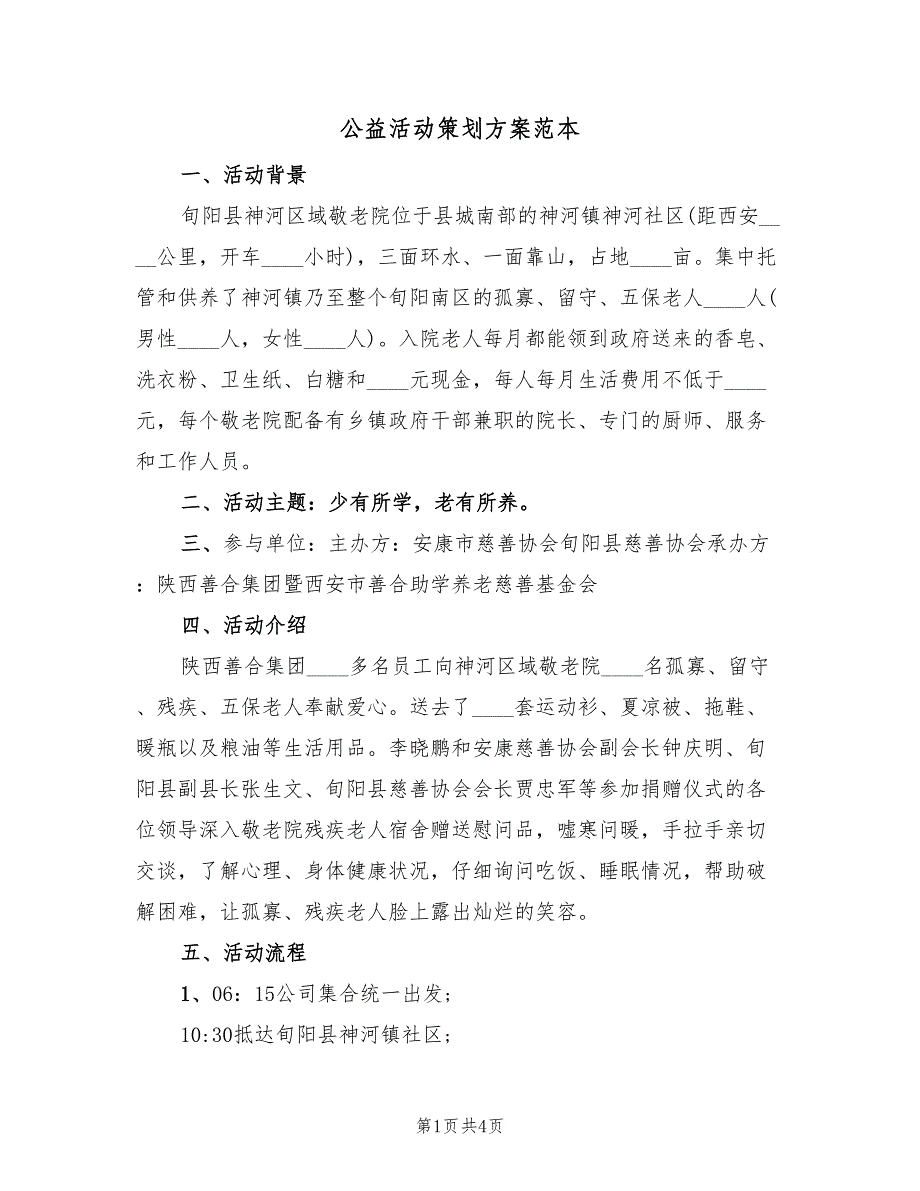 公益活动策划方案范本
一、活动背景
旬阳县神河区域敬老院位于县城南部的神河镇神河社区(距西安__
__公里，开车____小时)，三面环水、一面靠山，占地____亩。集中托
管和供养了神河镇乃至整个旬阳南区的孤寡、留守、五保老人____人(
男性____人，女性____人)。入院老人每月都能领到政府送来的香皂、
洗衣粉、卫生纸、白糖和____元现金，每人每月生活费用不低于____
元，每个敬老院配备有乡镇政府干部兼职的院长、专门的厨师、服务
和工作人员。
二、活动主题：少有所学，老有所养。
三、参与单位：主办方：安康市慈善协会旬阳县慈善协会承办方
：陕西善合集团暨西安市善合助学养老慈善基金会
四、活动介绍
陕西善合集团____多名员工向神河区域敬老院____名孤寡、留守
、残疾、五保老人奉献爱心。送去了____套运动衫、夏凉被、拖鞋、
暖瓶以及粮油等生活用品。李晓鹏和安康慈善协会副会长钟庆明、旬
阳县副县长张生文、旬阳县慈善协会会长贾忠军等参加捐赠仪式的各
位领导深入敬老院残疾老人宿舍赠送慰问品，嘘寒问暖，手拉手亲切
交谈，了解心理、身体健康状况，仔细询问吃饭、睡眠情况，帮助破
解困难，让孤寡、残疾老人脸上露出灿烂的笑容。
五、活动流程
1、06：15公司集合统一出发;
10:30抵达旬阳县神河镇社区;
第1页共4页